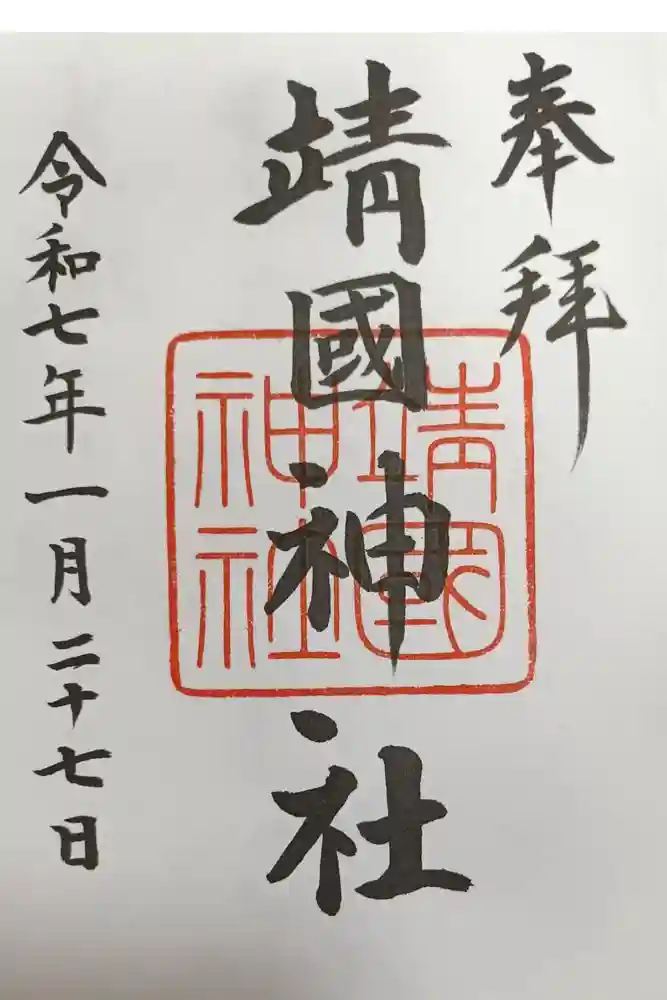 奉拝
靖國神社
靖國神社
令和七年一月二十七日